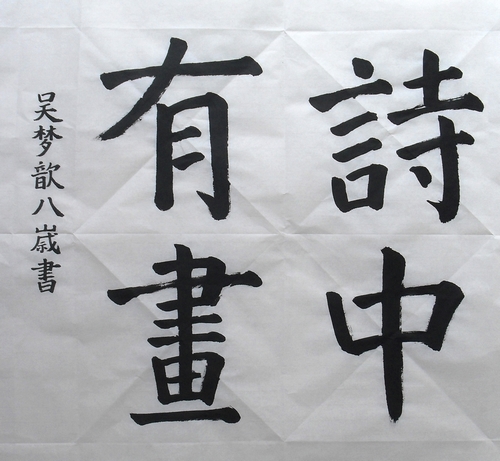 詩中
有畫
吴梦歆八歲書